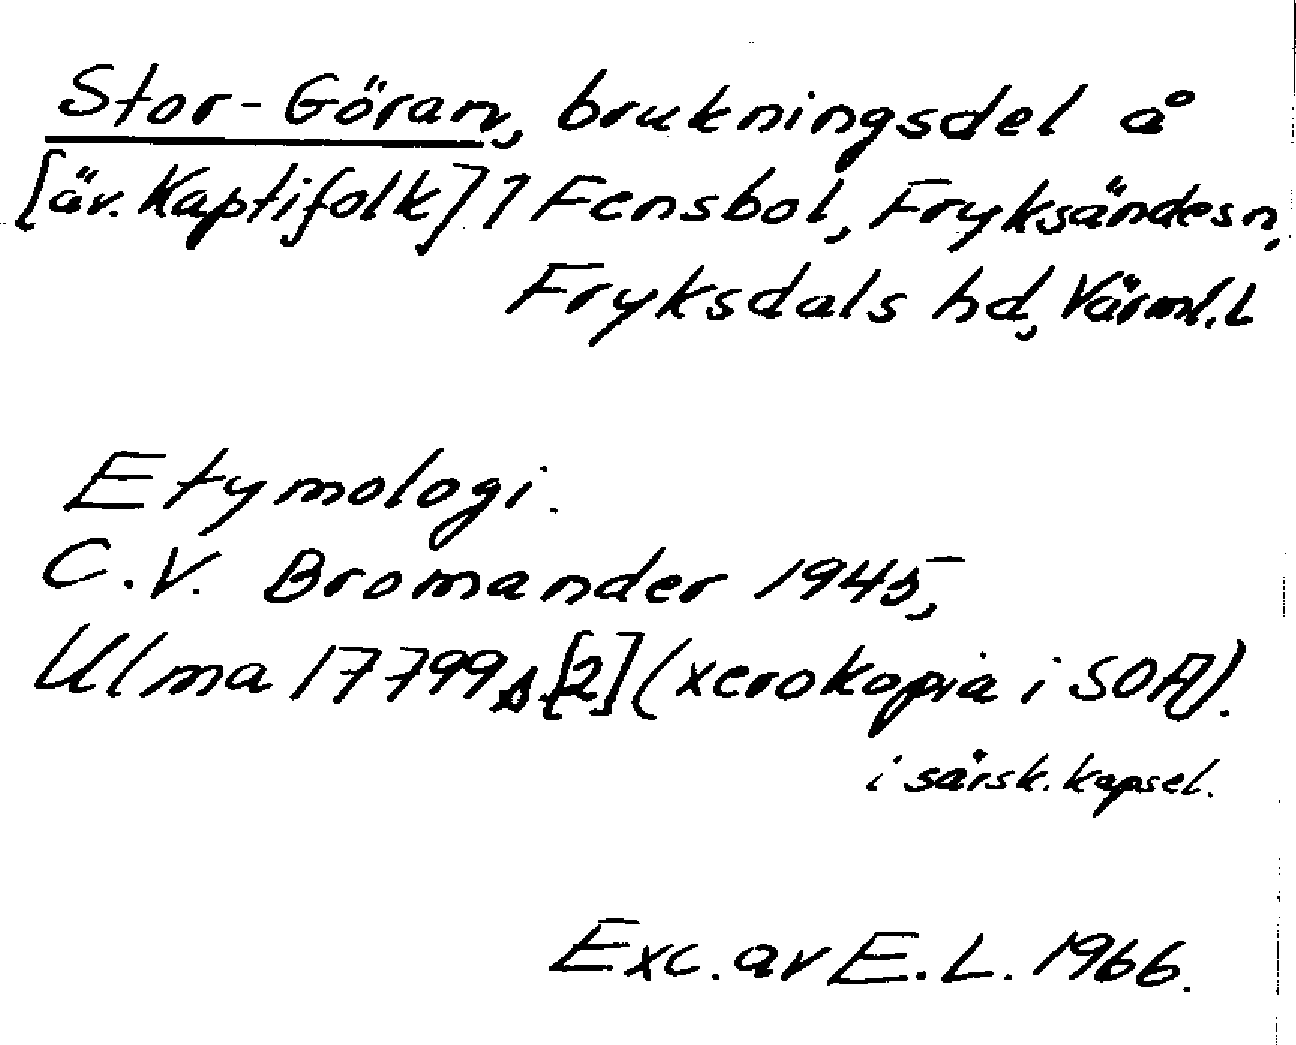 Stor-Göran, brukningsdel å
[äv. Kaptifolk] 1 Fensbol, Fryksände sn,
Fryksdals hd, Värml. l
Etymologi.
C.V. Bromander 1945,
Ulma 17799 [2] (xerokopia i SOA).
i särsk. kapsel.
Exc. av E.L. 1966.